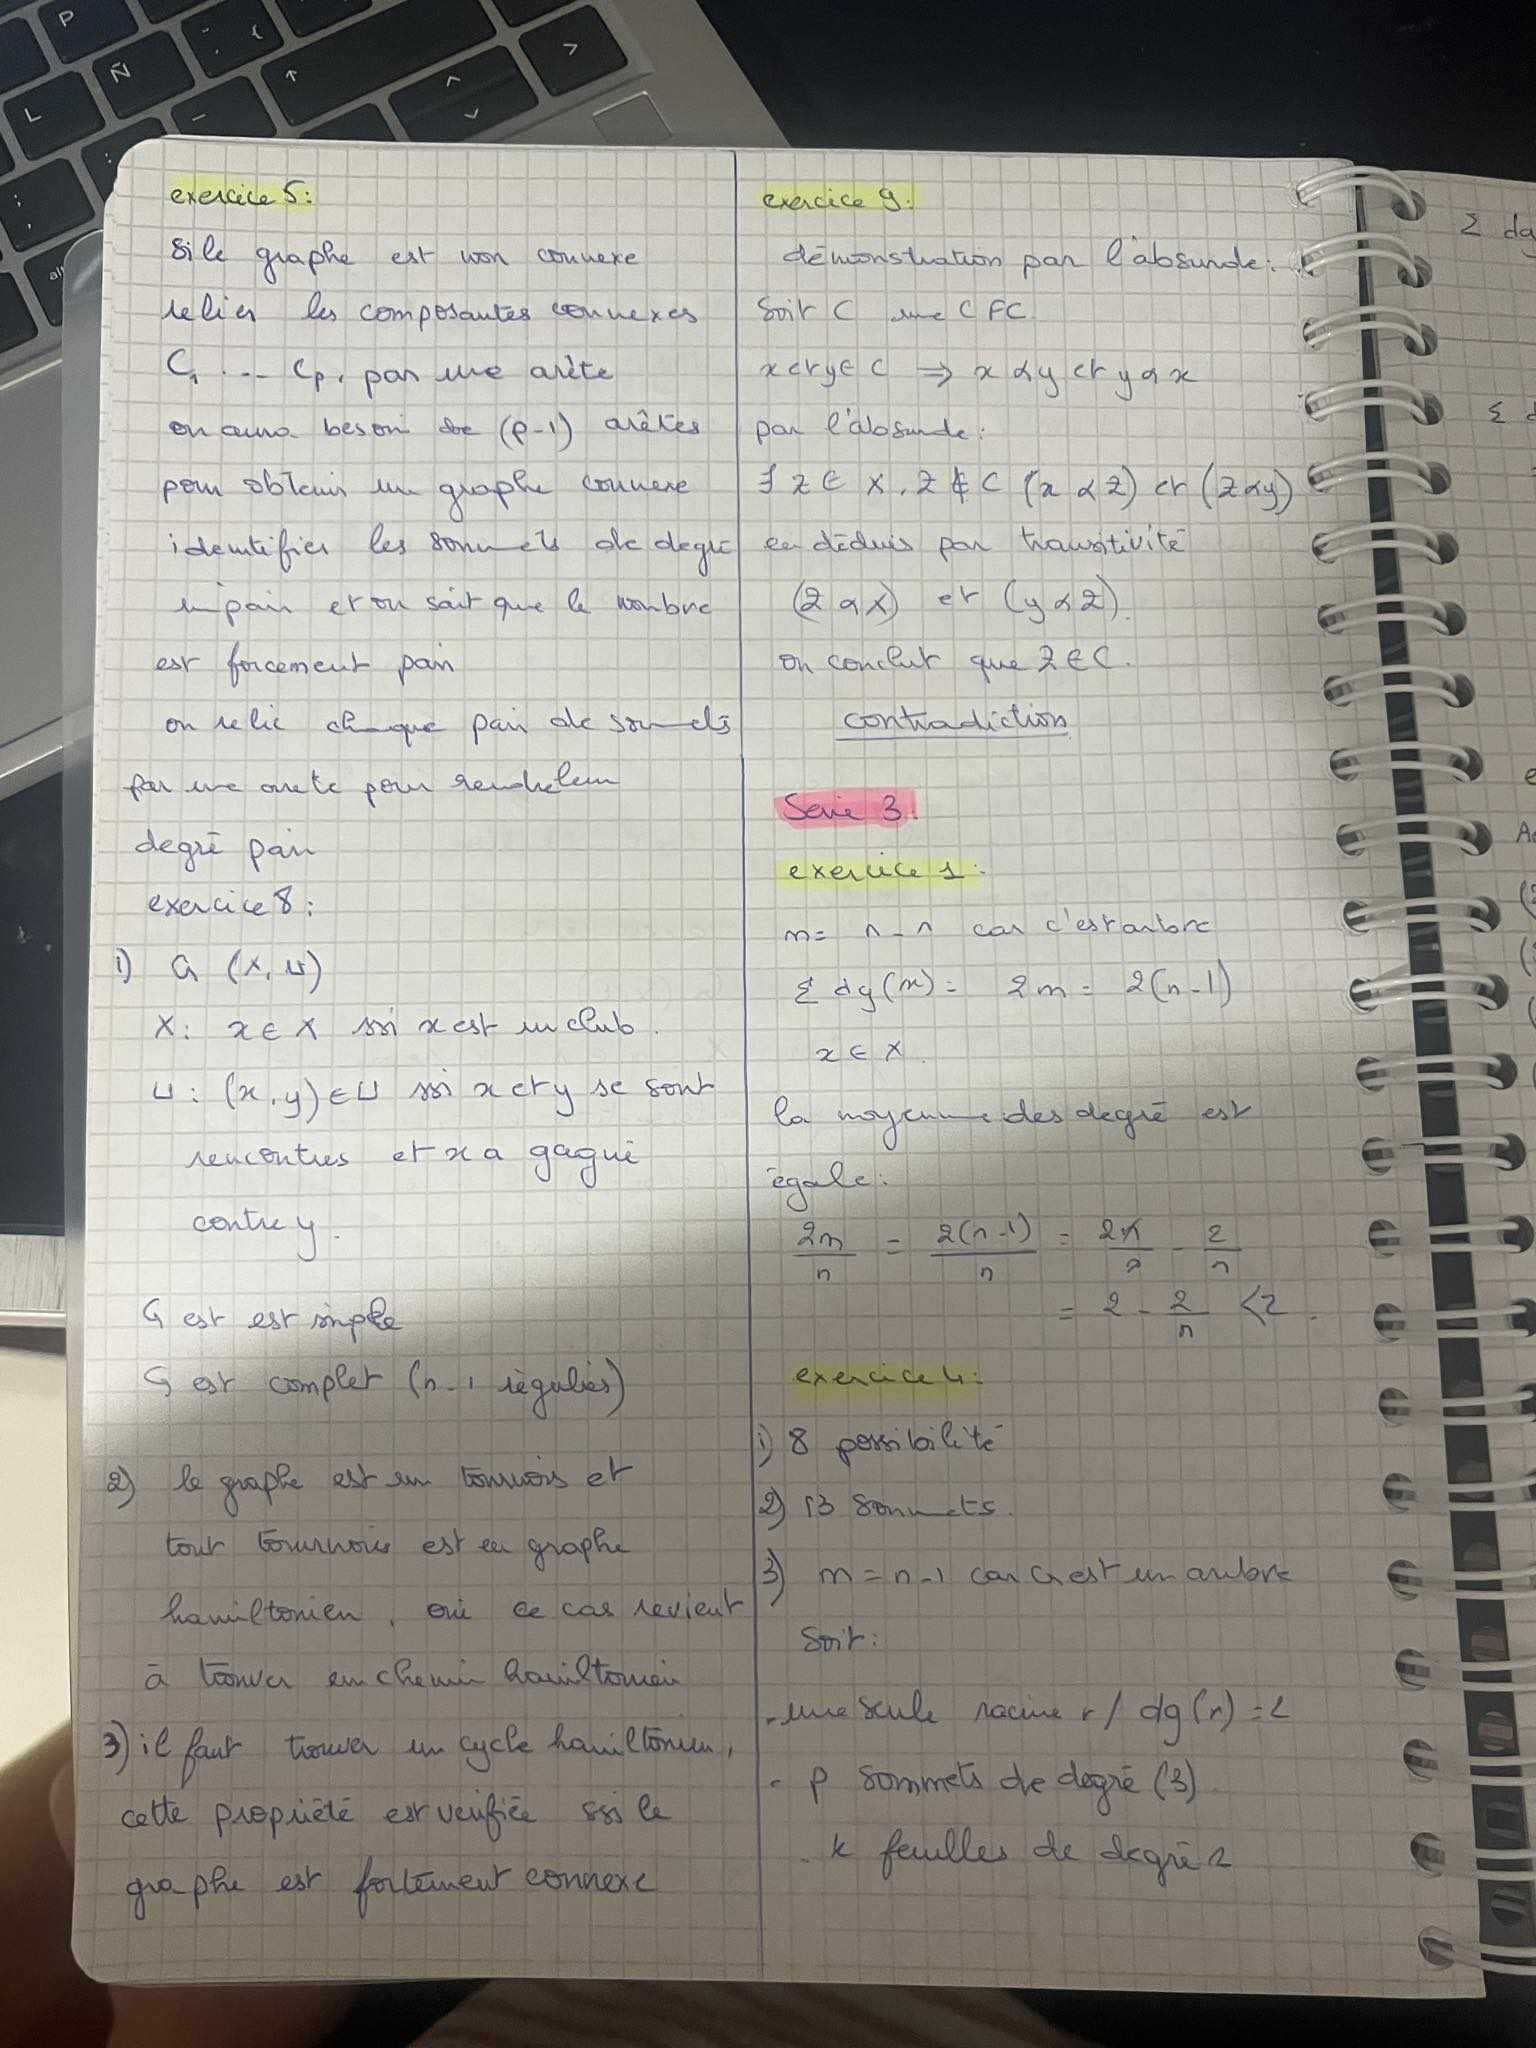 exercice 5:
Si le graphe est non connexe
relier les composantes connexes
C1 ... Cp, par une arête
on aura besoin de (p-1) arêtes
pour obtenir un graphe connexe
identifier les sommets de degré
impair et on sait que le nombre
est forcement pair
on relie chaque pair de sommets
par une arete pour rendre leur
degré pair
exercice 8:
1) G (X, U)
X: x ∈ X ssi x est un club.
U: (x, y) ∈ U ssi x et y se sont
rencontres et x a gagné
contre y.
G est est simple
G est complet (n-1 régulier)
2) le graphe est un tournois et
tout tournois est un graphe
hamiltonien, ce cas revient
à trouver un chemin hamiltonien
3) il faut trouver un cycle hamiltonien,
cette propriété est verifiée ssi le
graphe est fortement connexe
exercice 9:
démonstration par l'absurde:
Soit C une CFC.
x et y ∈ C ⇒ x α y et y α x
par l'absurde:
∃ z ∈ X, z ∉ C (x α z) et (z α y)
en déduis par transitivité
(z α x) et (y α z).
on conclut que z ∈ C.
contradiction
Serie 3:
exercice 1:
m= n - n car c'est arbre
Σ dg(x) = 2m = 2(n-1)
x ∈ X.
la moyenne des degré est
égale:
2m/n = 2(n-1)/n = 2n/n - 2/n
= 2 - 2/n < 2.
exercice 4:
1) 8 possibilité
2) 13 Sommets.
3) m = n-1 car G est un arbre
Soit:
- une seule racine r / dg(r) = 2
- p sommets de degré (3).
. k feuilles de degré 2
Σ dg